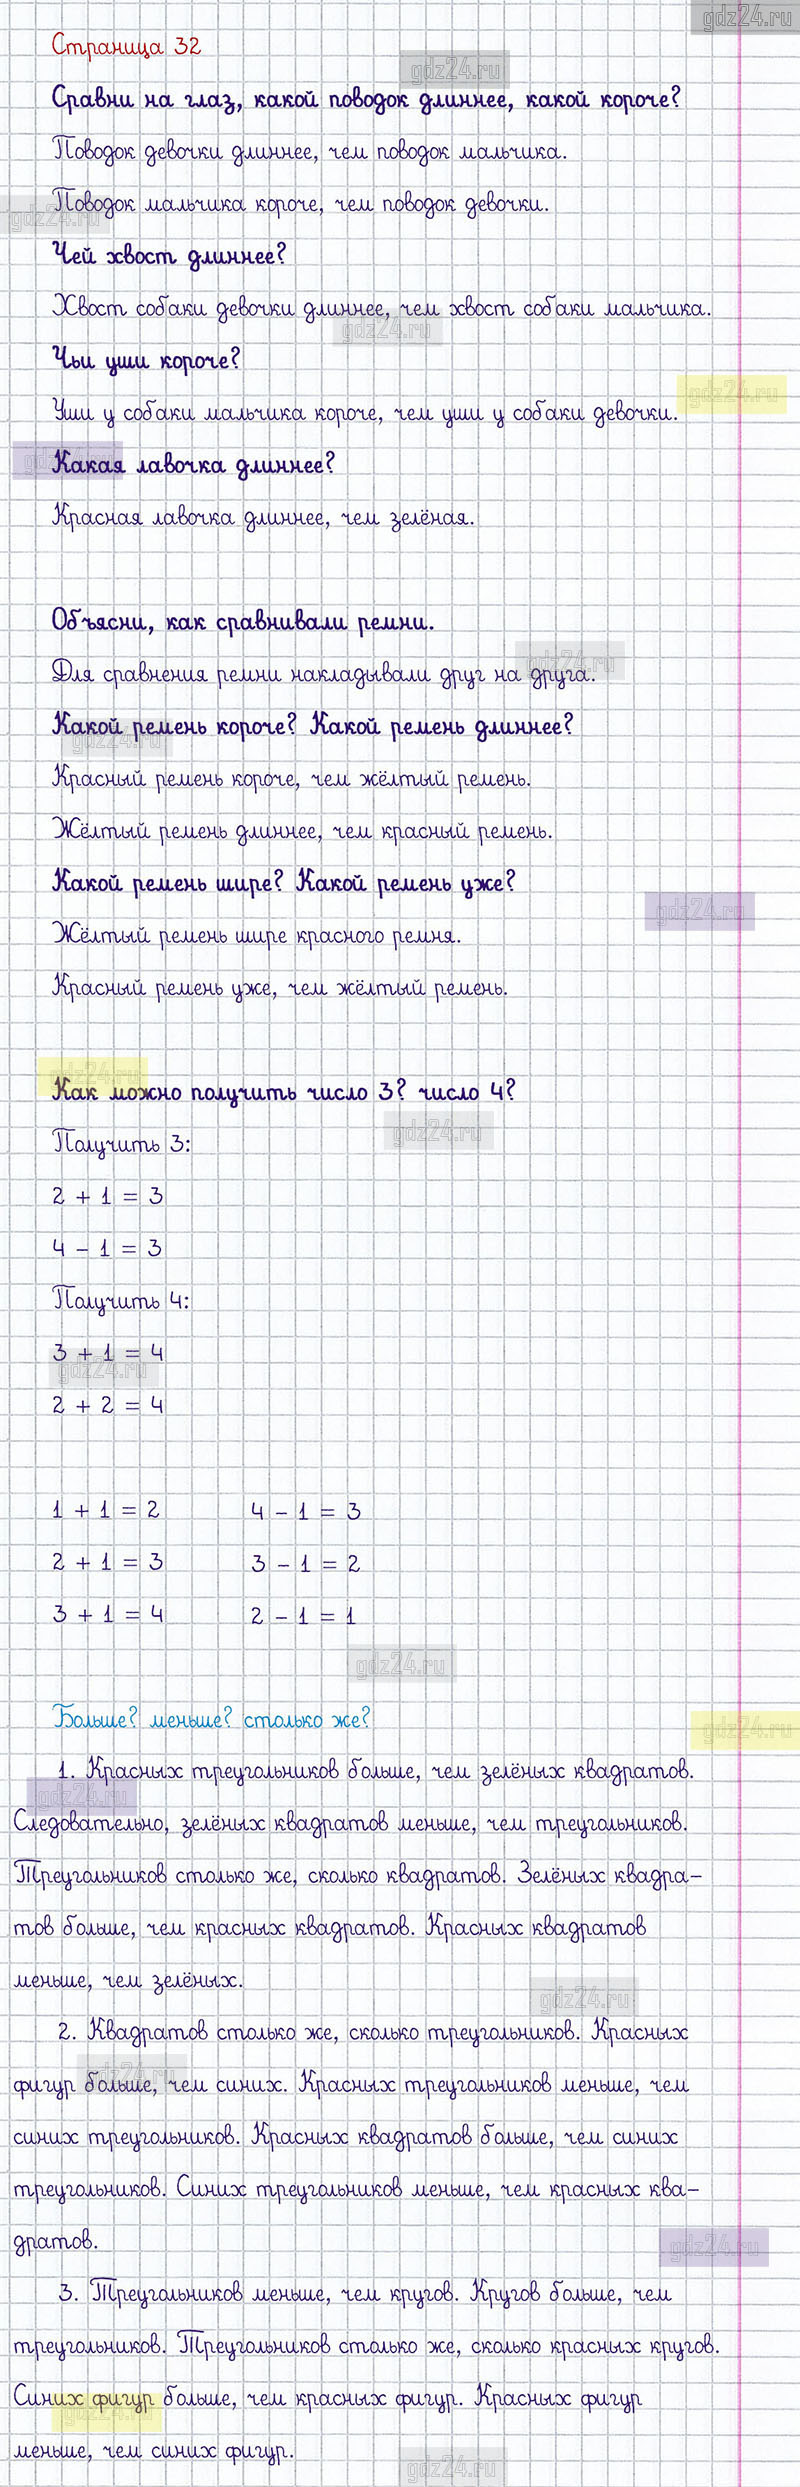 gdz24.ru
Страница 32
gdz24.ru
Сравни на глаз, какой поводок длиннее, какой короче?
Поводок девочки длиннее, чем поводок мальчика.
Поводок мальчика короче, чем поводок девочки.
gdz24.ru
Чей хвост длиннее?
Хвост собаки девочки длиннее, чем хвост собаки мальчика.
gdz24.ru
Чьи уши короче?
gdz24.ru
Уши у собаки мальчика короче, чем уши у собаки девочки.
gdz24.ru
Какая лавочка длиннее?
Красная лавочка длиннее, чем зелёная.
Объясни, как сравнивали ремни.
gdz24.ru
Для сравнения ремни накладывали друг на друга.
Какой ремень короче? Какой ремень длиннее?
gdz24.ru
Красный ремень короче, чем жёлтый ремень.
Жёлтый ремень длиннее, чем красный ремень.
Какой ремень шире? Какой ремень уже?
gdz24.ru
Жёлтый ремень шире красного ремня.
Красный ремень уже, чем жёлтый ремень.
gdz24.ru
Как можно получить число 3? число 4?
gdz24.ru
Получить 3:
2 + 1 = 3
4 – 1 = 3
Получить 4:
3 + 1 = 4
gdz24.ru
2 + 2 = 4
1 + 1 = 2 4 – 1 = 3
2 + 1 = 3 3 – 1 = 2
3 + 1 = 4 2 – 1 = 1
gdz24.ru
Больше? меньше? столько же?
gdz24.ru
1. Красных треугольников больше, чем зелёных квадратов.
gdz24.ru
Следовательно, зелёных квадратов меньше, чем треугольников.
Треугольников столько же, сколько квадратов. Зелёных квадра–
тов больше, чем красных квадратов. Красных квадратов
меньше, чем зелёных.
gdz24.ru
2. Квадратов столько же, сколько треугольников. Красных
gdz24.ru
фигур больше, чем синих. Красных треугольников меньше, чем
синих треугольников. Красных квадратов больше, чем синих
треугольников. Синих треугольников меньше, чем красных ква–
дратов.
gdz24.ru
3. Треугольников меньше, чем кругов. Кругов больше, чем
треугольников. Треугольников столько же, сколько красных кругов.
Синих фигур больше, чем красных фигур. Красных фигур
gdz24.ru
меньше, чем синих фигур.
gdz24.ru